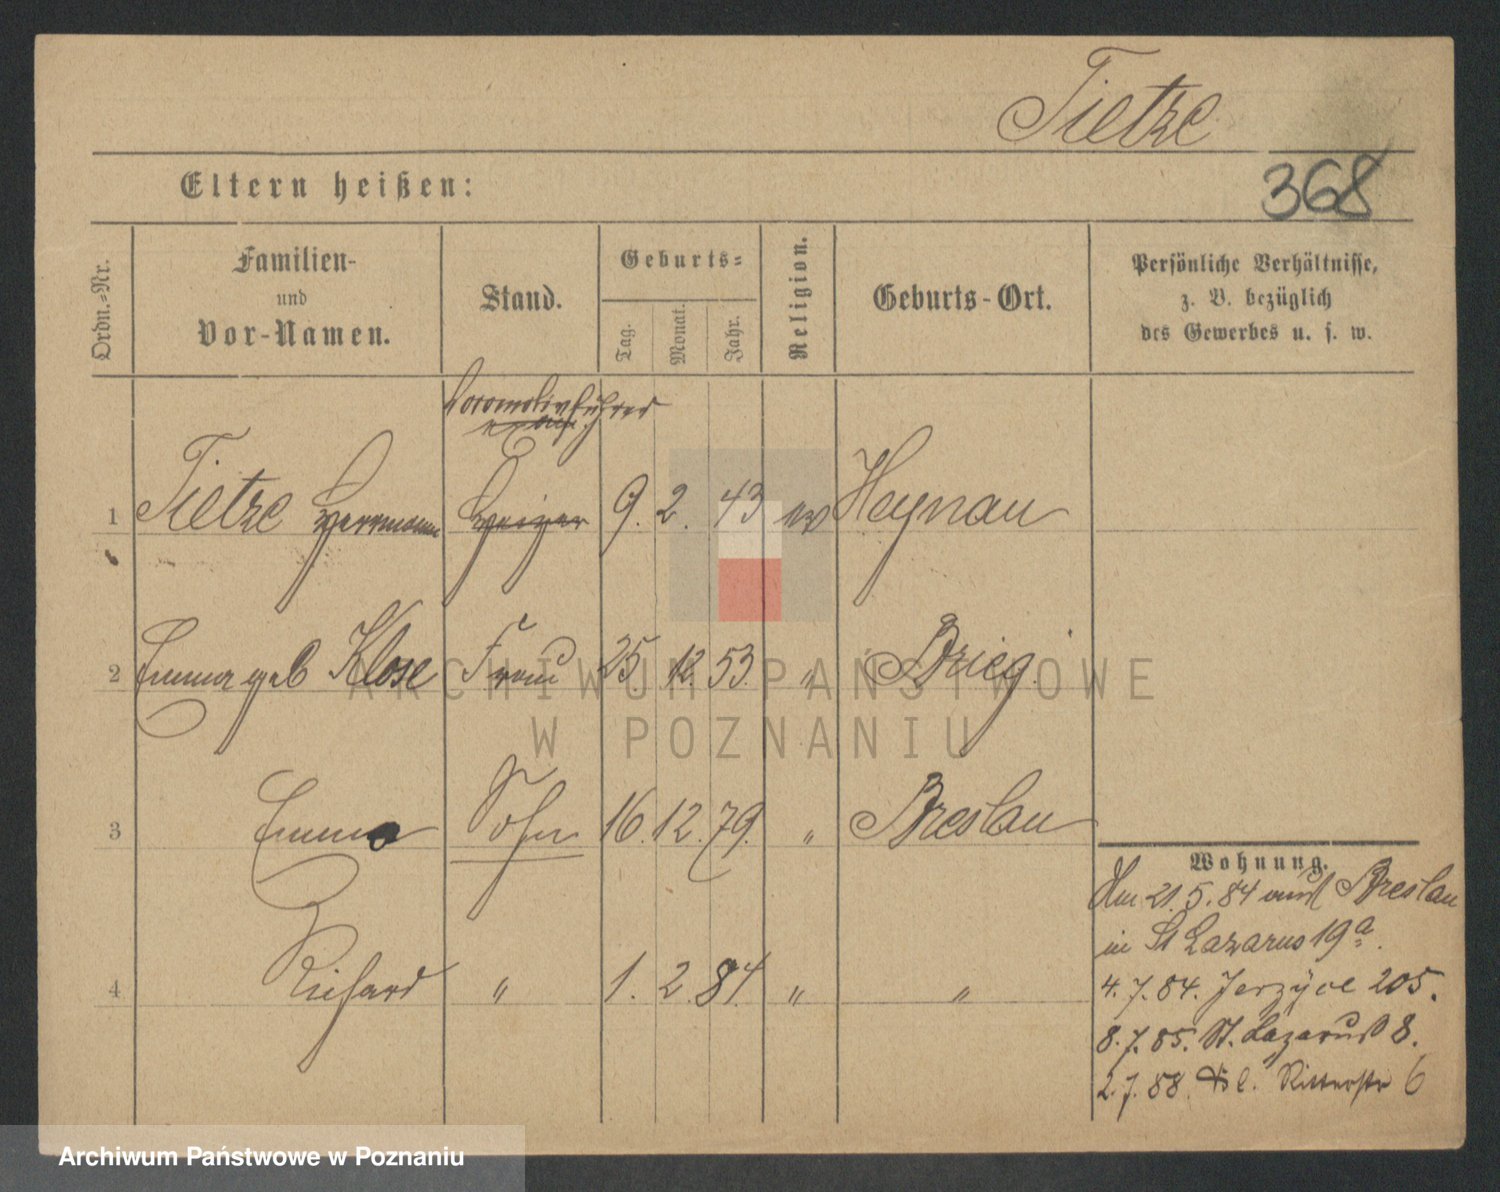 Tietze
368
Eltern heißen:
Ordn.-Nr.
Familien-
und
Vor-Namen.
Stand.
Geburts-
Tag.
Monat.
Jahr.
Religion.
Geburts-Ort.
Persönliche Verhältnisse,
z. B. bezüglich
des Gewerbes u. s. w.
Locomotivführer
1 Tietze Herrmann Heizer 9. 2. 43 ev Heynau
2 Emma geb Klose Frau 25. 12. 53 " Brieg.
3 Emma Sohn 16. 12. 79. " Breslau
4 Richard " 1. 2. 84. " "
Wohnung.
Am 21.5.84 aus Breslau
in St Lazarus 19a.
4.7.84. Jerzyce 205.
8.7.85. St. Lazarus 8.
2.7.88. Ritterstr 6
ARCHIWUM PAŃSTWOWE
W POZNANIU
Archiwum Państwowe w Poznaniu